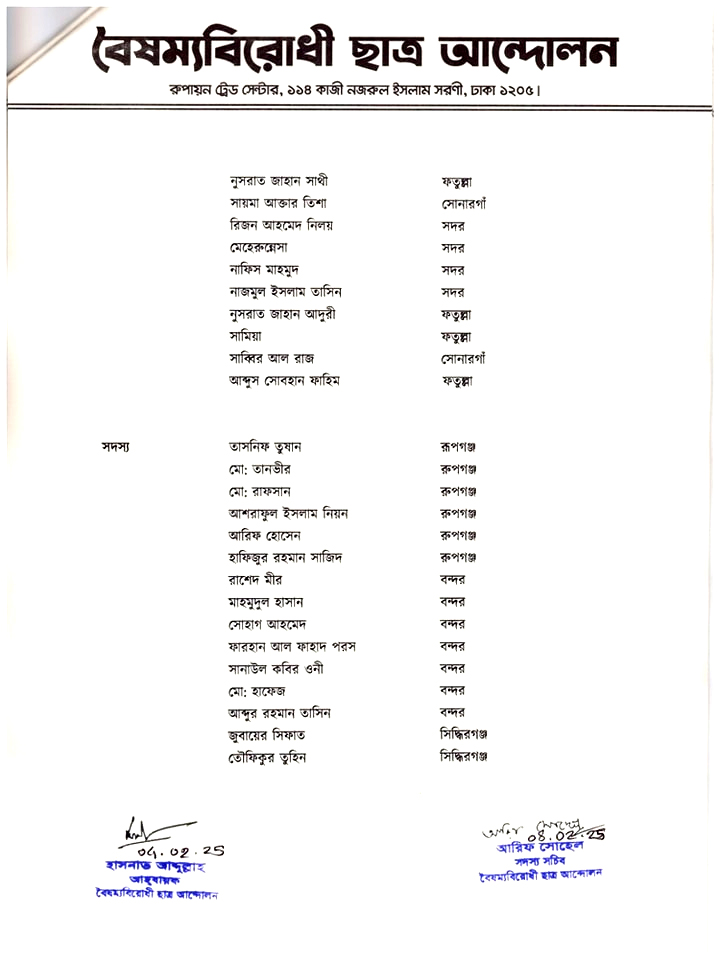 বৈষম্যবিরোধী ছাত্র আন্দোলন
রুপায়ন ট্রেড সেন্টার, ১১৪ কাজী নজরুল ইসলাম সরণী, ঢাকা ১২০৫।
নুসরাত জাহান সাথী ফতুল্লা
সায়মা আক্তার তিশা সোনারগাঁ
রিজন আহমেদ নিলয় সদর
মেহেরুন্নেসা সদর
নাফিস মাহমুদ সদর
নাজমুল ইসলাম তাসিন সদর
নুসরাত জাহান আদুরী ফতুল্লা
সামিয়া ফতুল্লা
সাব্বির আল রাজ সোনারগাঁ
আব্দুস সোবহান ফাহিম ফতুল্লা
সদস্য তাসনিফ তুষান রূপগঞ্জ
মো: তানভীর রুপগঞ্জ
মো: রাফসান রুপগঞ্জ
আশরাফুল ইসলাম নিয়ন রুপগঞ্জ
আরিফ হোসেন রুপগঞ্জ
হাফিজুর রহমান সাজিদ রুপগঞ্জ
রাশেদ মীর বন্দর
মাহমুদুল হাসান বন্দর
সোহাগ আহমেদ বন্দর
ফারহান আল ফাহাদ পরস বন্দর
সানাউল কবির ওনী বন্দর
মো: হাফেজ বন্দর
আব্দুর রহমান তাসিন বন্দর
জুবায়ের সিফাত সিদ্ধিরগঞ্জ
তৌফিকুর তুহিন সিদ্ধিরগঞ্জ
04.02.25
হাসনাত আব্দুল্লাহ
আহবায়ক
বৈষম্যবিরোধী ছাত্র আন্দোলন
04.02.25
আরিফ সোহেল
সদস্য সচিব
বৈষম্যবিরোধী ছাত্র আন্দোলন